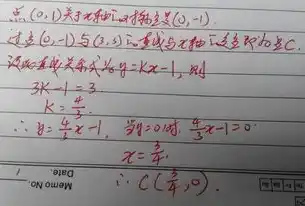 点(0,1)关于x轴的对称点是(0,-1).
过点(0,-1)与(3,3)的直线与x轴的交点即为点C.
设此直线关系式为y=kx-1,则
3k-1=3.
k=4/3.
∴y=4/3x-1, 当y=0时, 4/3x-1=0.
x=3/4.
∴C(3/4,0).
Memo No.
Date